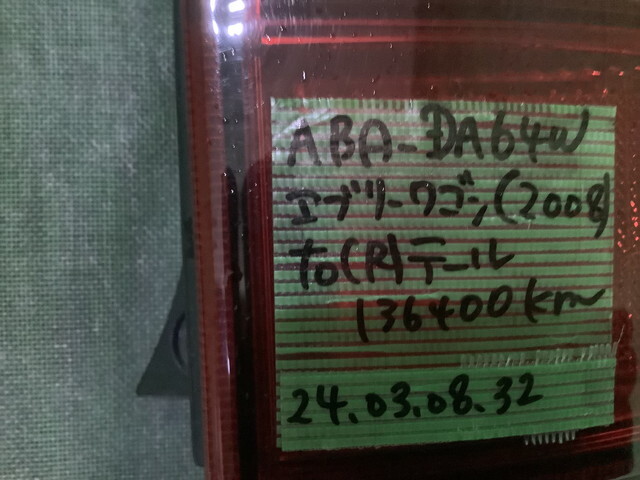 ABA-DA64W
エブリーワゴン(2008)
to(R)テール
136400km
24.03.08.32